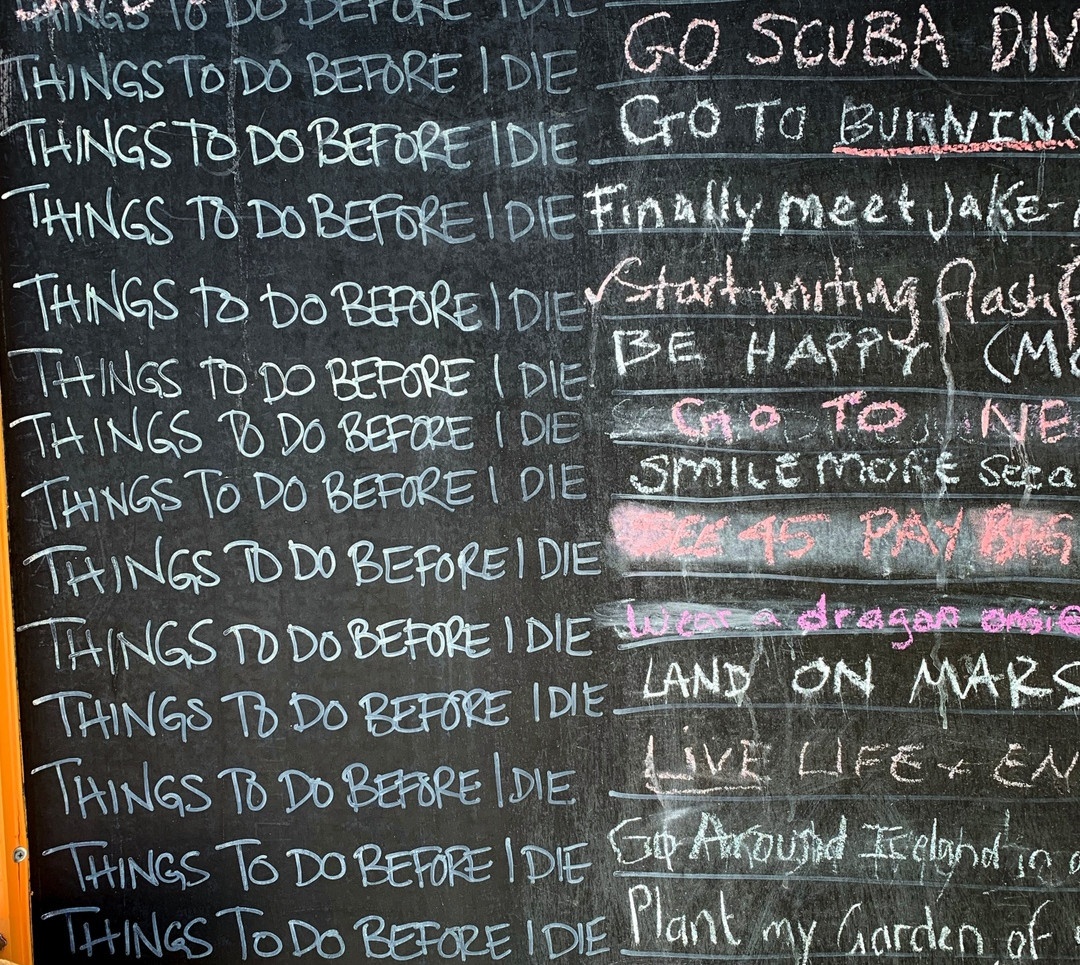 THINGS TO DO BEFORE I DIE GO SCUBA DIV
THINGS TO DO BEFORE I DIE GO TO BURNING
THINGS TO DO BEFORE I DIE Finally meet JAKE-
THINGS TO DO BEFORE I DIE Start writing flash f
THINGS TO DO BEFORE I DIE BE HAPPY (MO
THINGS TO DO BEFORE I DIE GO TO NE
THINGS TO DO BEFORE I DIE SMILE MORE Seca
THINGS TO DO BEFORE I DIE SEE 45 PAY BAG
THINGS TO DO BEFORE I DIE Wear a dragon onsie
THINGS TO DO BEFORE I DIE LAND ON MARS
THINGS TO DO BEFORE I DIE LIVE LIFE + EN
THINGS TO DO BEFORE I DIE Go Around Ireland in a
THINGS TO DO BEFORE I DIE Plant my Garden of
THINGS TO DO BEFORE I DIE